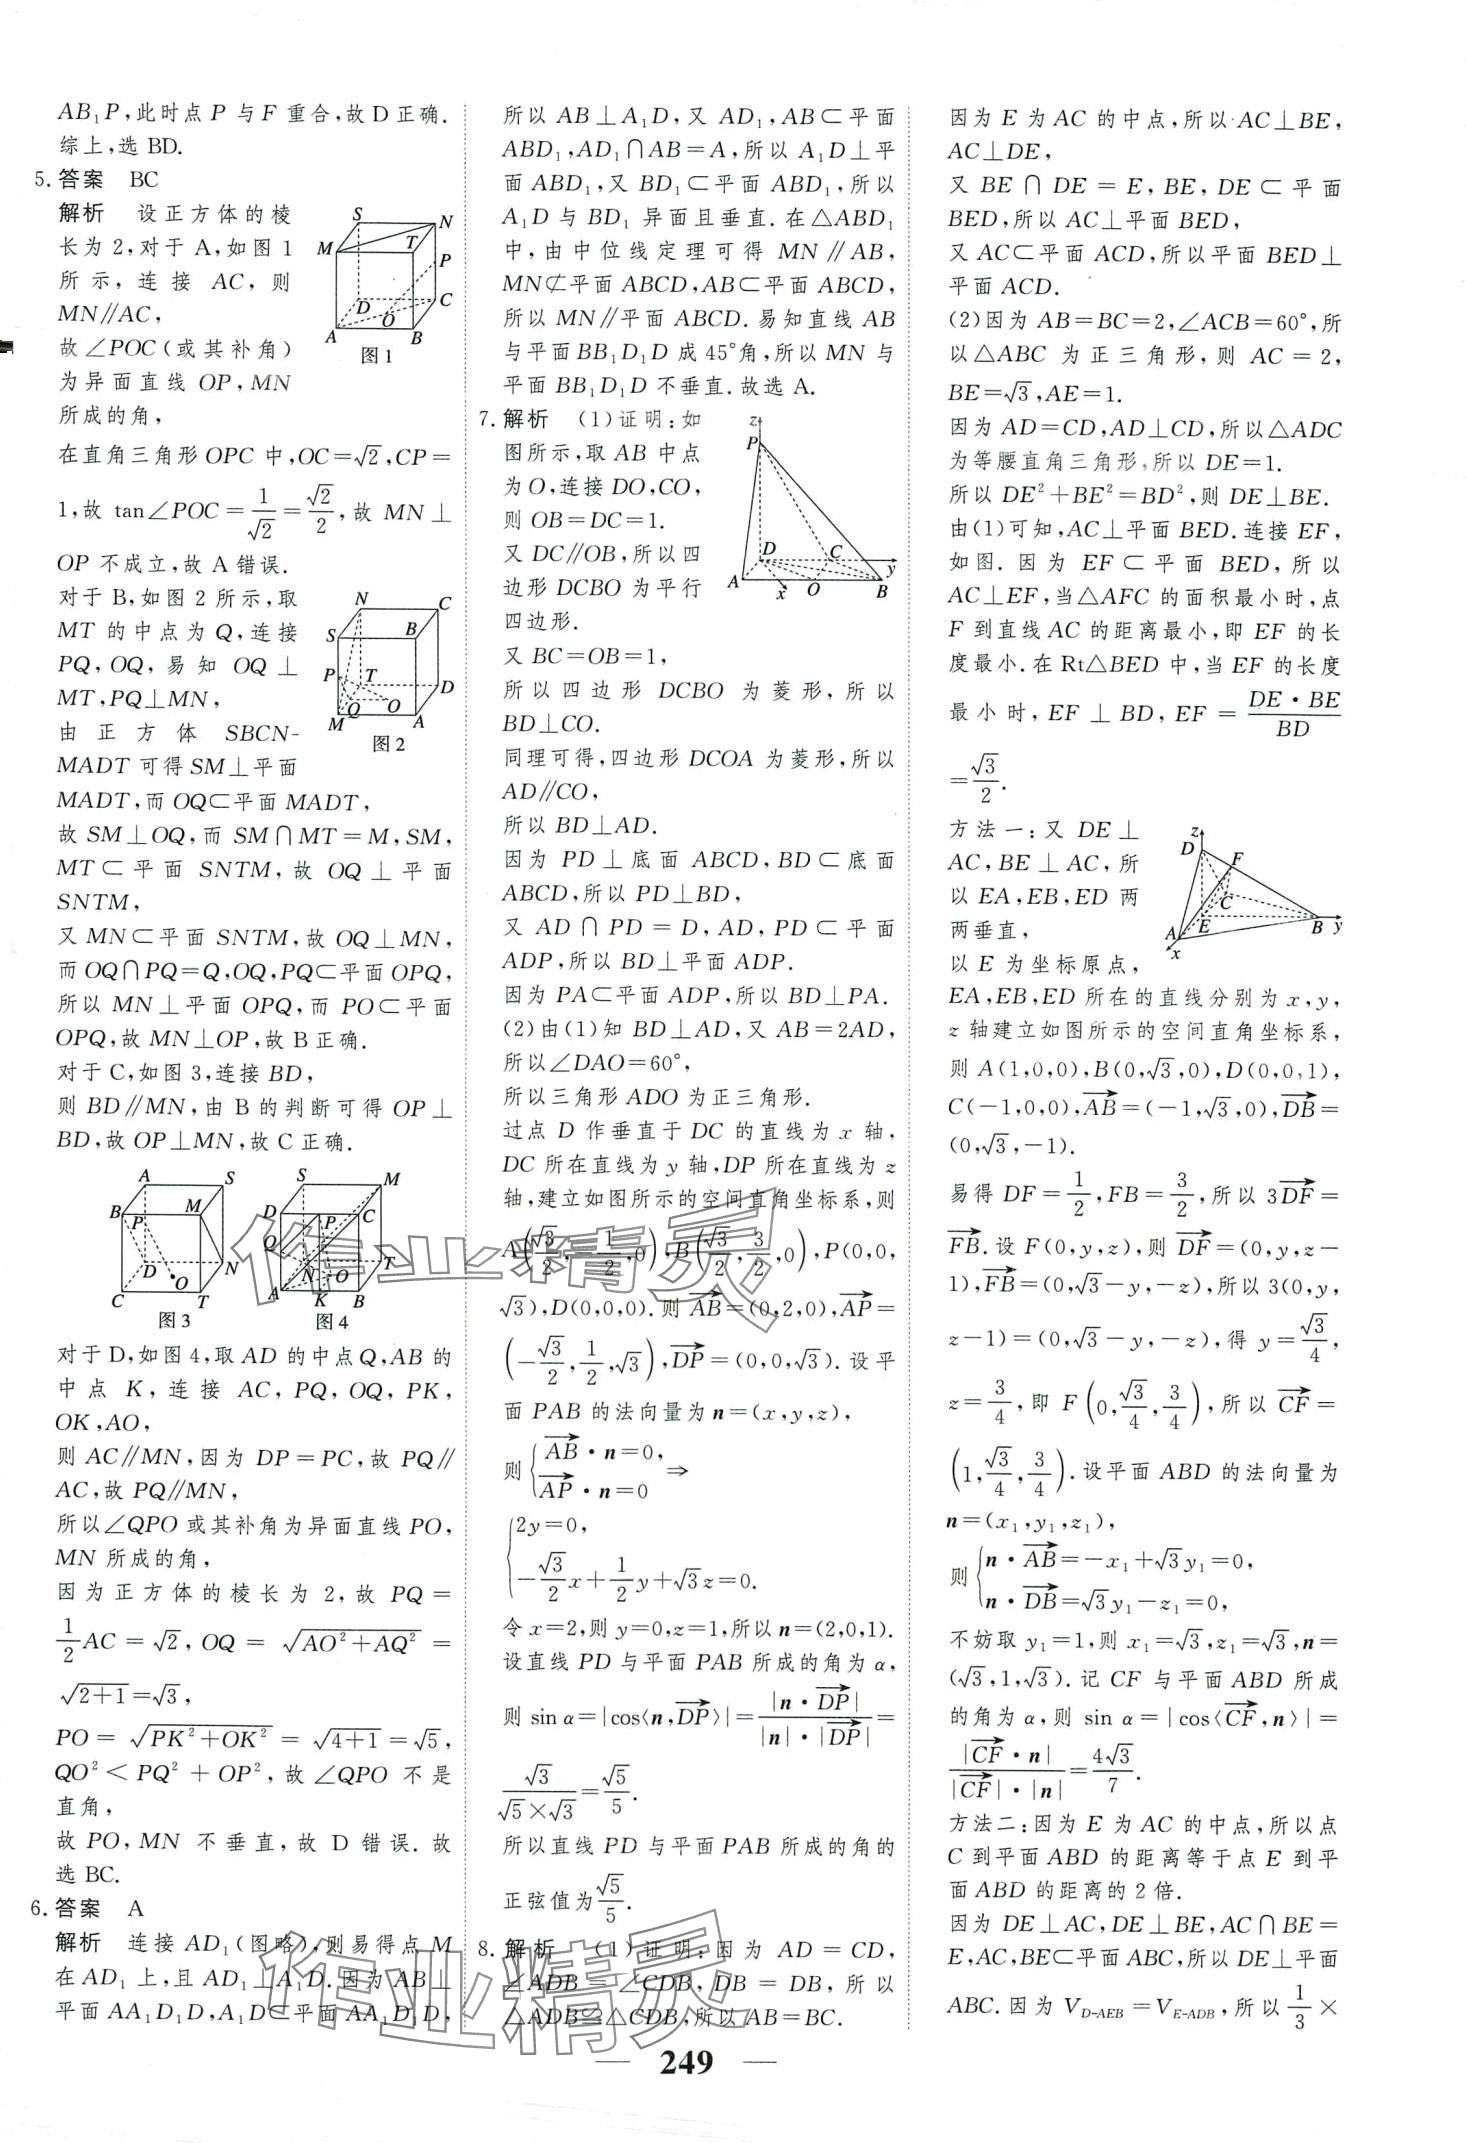 AB₁P,此时点 P 与 F 重合,故 D 正确.
综上,选 BD.
5. 答案 BC
解析 设正方体的棱
长为 2,对于 A,如图 1
所示,连接 AC,则
MN∥AC,
故∠POC(或其补角)
为异面直线 OP,MN
所成的角,
S
N
M
T
P
D
C
O
A
B
图 1
在直角三角形 OPC 中,OC=√2,CP=
1,故 tan∠POC=1/√2=√2/2,故 MN⊥
OP 不成立,故 A 错误.
对于 B,如图 2 所示,取
MT 的中点为 Q,连接
PQ,OQ,易知 OQ⊥
MT,PQ⊥MN,
由正方体 SBCN-
MADT 可得 SM⊥平面
N
C
S
B
P
T
D
Q
O
M
A
图 2
MADT,而 OQ⊂平面 MADT,
故 SM⊥OQ,而 SM∩MT=M,SM,
MT⊂平面 SNTM,故 OQ⊥平面
SNTM,
又 MN⊂平面 SNTM,故 OQ⊥MN,
而 OQ∩PQ=Q,OQ,PQ⊂平面 OPQ,
所以 MN⊥平面 OPQ,而 PO⊂平面
OPQ,故 MN⊥OP,故 B 正确.
对于 C,如图 3,连接 BD,
则 BD∥MN,由 B 的判断可得 OP⊥
BD,故 OP⊥MN,故 C 正确.
A
S
B
M
P
D
N
O
C
T
图 3
S
M
D
P
C
Q
T
N
O
A
K
B
图 4
对于 D,如图 4,取 AD 的中点 Q,AB 的
中点 K,连接 AC,PQ,OQ,PK,
OK,AO,
则 AC∥MN,因为 DP=PC,故 PQ∥
AC,故 PQ∥MN,
所以∠QPO 或其补角为异面直线 PO,
MN 所成的角,
因为正方体的棱长为 2,故 PQ=
1/2 AC=√2,OQ=√(AO²+AQ²)=
√(2+1)=√3,
PO=√(PK²+OK²)=√(4+1)=√5,
QO²<PQ²+OP²,故∠QPO 不是
直角,
故 PO,MN 不垂直,故 D 错误.故
选 BC.
6. 答案 A
解析 连接 AD₁(图略),则易得点 M
在 AD₁ 上,且 AD₁⊥A₁D.因为 AB⊥
平面 AA₁D₁D,A₁D⊂平面 AA₁D₁D,
所以 AB⊥A₁D,又 AD₁,AB⊂平面
ABD₁,AD₁∩AB=A,所以 A₁D⊥平
面 ABD₁,又 BD₁⊂平面 ABD₁,所以
A₁D 与 BD₁ 异面且垂直.在△ABD₁
中,由中位线定理可得 MN∥AB,
MN⊄平面 ABCD,AB⊂平面 ABCD,
所以 MN∥平面 ABCD.易知直线 AB
与平面 BB₁D₁D 成 45°角,所以 MN 与
平面 BB₁D₁D 不垂直.故选 A.
7. 解析 (1)证明:如
图所示,取 AB 中点
为 O,连接 DO,CO,
则 OB=DC=1.
又 DC∥OB,所以四
边形 DCBO 为平行
四边形.
z
P
D
C
y
A
x
O
B
又 BC=OB=1,
所以四边形 DCBO 为菱形,所以
BD⊥CO.
同理可得,四边形 DCOA 为菱形,所以
AD∥CO,
所以 BD⊥AD.
因为 PD⊥底面 ABCD,BD⊂底面
ABCD,所以 PD⊥BD,
又 AD∩PD=D,AD,PD⊂平面
ADP,所以 BD⊥平面 ADP.
因为 PA⊂平面 ADP,所以 BD⊥PA.
(2)由(1)知 BD⊥AD,又 AB=2AD,
所以∠DAO=60°,
所以三角形 ADO 为正三角形.
过点 D 作垂直于 DC 的直线为 x 轴,
DC 所在直线为 y 轴,DP 所在直线为 z
轴,建立如图所示的空间直角坐标系,则
A(√3/2,-1/2,0),B(√3/2,3/2,0),P(0,0,
√3),D(0,0,0).则 AB→=(0,2,0),AP→=
(-√3/2,1/2,√3),DP→=(0,0,√3).设平
面 PAB 的法向量为 n=(x,y,z),
则{AB→·n=0,
AP→·n=0 ⇒
{2y=0,
-√3/2 x+1/2 y+√3z=0.
令 x=2,则 y=0,z=1,所以 n=(2,0,1).
设直线 PD 与平面 PAB 所成的角为 α,
则 sin α=|cos⟨n,DP→⟩|=|n·DP→|/(|n|·|DP→|)=
√3/(√5×√3)=√5/5.
所以直线 PD 与平面 PAB 所成的角的
正弦值为√5/5.
8. 解析 (1)证明:因为 AD=CD,
∠ADB=∠CDB,DB=DB,所以
△ADB≌△CDB,所以 AB=BC.
因为 E 为 AC 的中点,所以 AC⊥BE,
AC⊥DE,
又 BE∩DE=E,BE,DE⊂平面
BED,所以 AC⊥平面 BED,
又 AC⊂平面 ACD,所以平面 BED⊥
平面 ACD.
(2)因为 AB=BC=2,∠ACB=60°,所
以△ABC 为正三角形,则 AC=2,
BE=√3,AE=1.
因为 AD=CD,AD⊥CD,所以△ADC
为等腰直角三角形,所以 DE=1.
所以 DE²+BE²=BD²,则 DE⊥BE.
由(1)可知,AC⊥平面 BED.连接 EF,
如图.因为 EF⊂平面 BED,所以
AC⊥EF,当△AFC 的面积最小时,点
F 到直线 AC 的距离最小,即 EF 的长
度最小.在 Rt△BED 中,当 EF 的长度
最小时,EF⊥BD,EF=DE·BE/BD
=√3/2.
方法一:又 DE⊥
AC,BE⊥AC,所
以 EA,EB,ED 两
两垂直,
以 E 为坐标原点,
z
D
F
C
A
E
B
y
x
EA,EB,ED 所在的直线分别为 x,y,
z 轴建立如图所示的空间直角坐标系,
则 A(1,0,0),B(0,√3,0),D(0,0,1),
C(-1,0,0),AB→=(-1,√3,0),DB→=
(0,√3,-1).
易得 DF=1/2,FB=3/2,所以 3DF→=
FB→.设 F(0,y,z),则 DF→=(0,y,z-
1),FB→=(0,√3-y,-z),所以 3(0,y,
z-1)=(0,√3-y,-z),得 y=√3/4,
z=3/4,即 F(0,√3/4,3/4),所以 CF→=
(1,√3/4,3/4).设平面 ABD 的法向量为
n=(x₁,y₁,z₁),
则{n·AB→=-x₁+√3y₁=0,
n·DB→=√3y₁-z₁=0,
不妨取 y₁=1,则 x₁=√3,z₁=√3,n=
(√3,1,√3).记 CF 与平面 ABD 所成
的角为 α,则 sin α=|cos⟨CF→,n⟩|=
|CF→·n|/(|CF→|·|n|)=4√3/7.
方法二:因为 E 为 AC 的中点,所以点
C 到平面 ABD 的距离等于点 E 到平
面 ABD 的距离的 2 倍.
因为 DE⊥AC,DE⊥BE,AC∩BE=
E,AC,BE⊂平面 ABC,所以 DE⊥平面
ABC.因为 V_{D-AEB}=V_{E-ADB},所以 1/3×
249
作业精灵
作业精灵